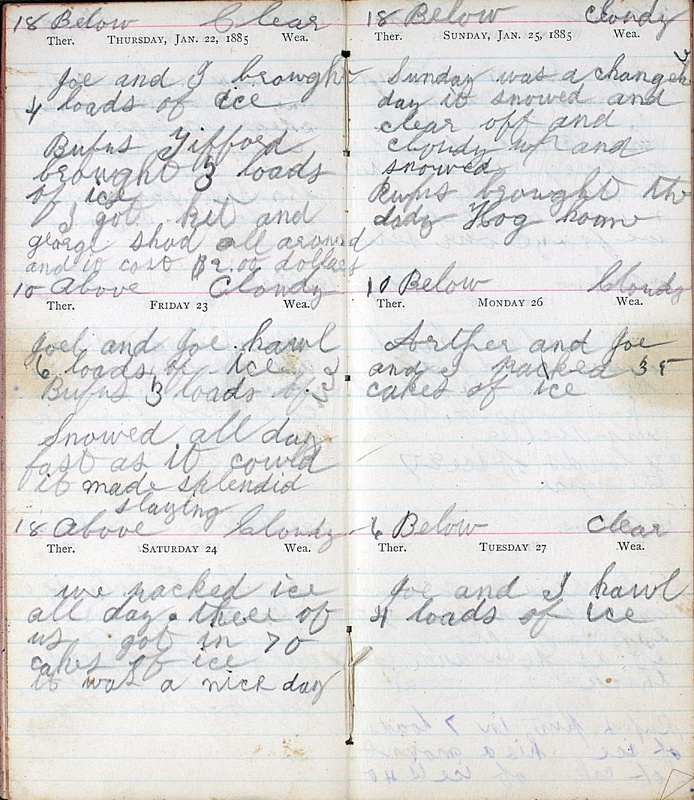 18 Below Clear
Ther. THURSDAY, JAN. 22, 1885 Wea.
Joe and I brought
4 loads of ice
Bufus Gifford
brought 3 loads
of ice
I got kit and
george shod all around
and it cost $2.00 dollars
10 Above Cloudy
Ther. FRIDAY 23 Wea.
Joel and Joe hawl
6 loads of ice
Bufus 3 loads of
Snowed all day
fast as it could
it made splendid
slaying
18 Above Cloudy
Ther. SATURDAY 24 Wea.
we packed ice
all day three of
us got in 70
cakes of ice
it was a nice day
18 Below Cloudy
Ther. SUNDAY, JAN. 25, 1885 Wea.
Sunday was a
day it snowed and
clear off and
cloudy up and
snowed
Rufus brought the
Hog home
10 Below Cloudy
Ther. MONDAY 26 Wea.
Arther and Joe
and I packed 35
cakes of ice
6 Below Clear
Ther. TUESDAY 27 Wea.
Joe and I hawl
4 loads of ice